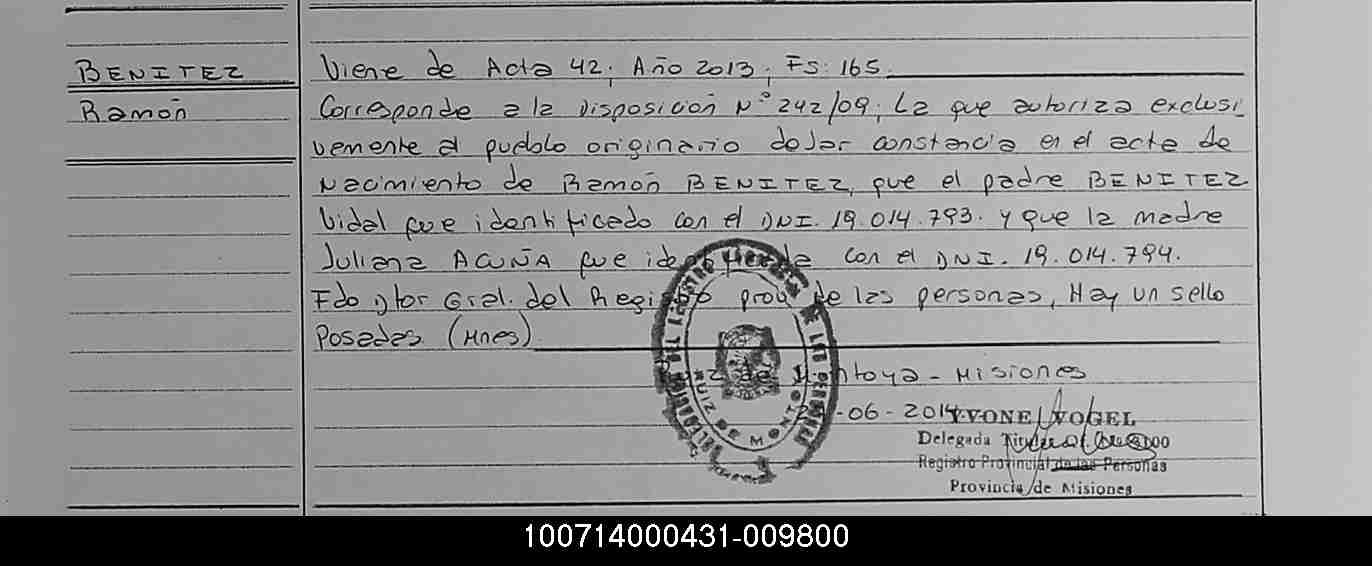 BENITEZ
Ramón
Viene de Acta 42; Año 2013; Fs: 165.
Corresponde a la Disposición N° 242/09; La que autoriza exclusi
vemente al pueblo originario dejar constancia en el acta de
Nacimiento de Ramón BENITEZ, que el padre BENITEZ
Vidal fue identificado con el DNI. 19.014.793. y que la madre
Juliana ACUÑA fue identificada con el DNI. 19.014.794.
Fdo Dtor Gral. del Registro prov. de las personas, Hay un sello
Posadas (Mnes)
Ruiz de Montoya - Misiones
-06-2014
YVONE VOGEL
Delegada Titular
Registro Provincial de las Personas
Provincia de Misiones
DELEGACION DEL REGISTRO PROVINCIAL DE LAS PERSONAS
RUIZ DE MONTOYA
100714000431-009800